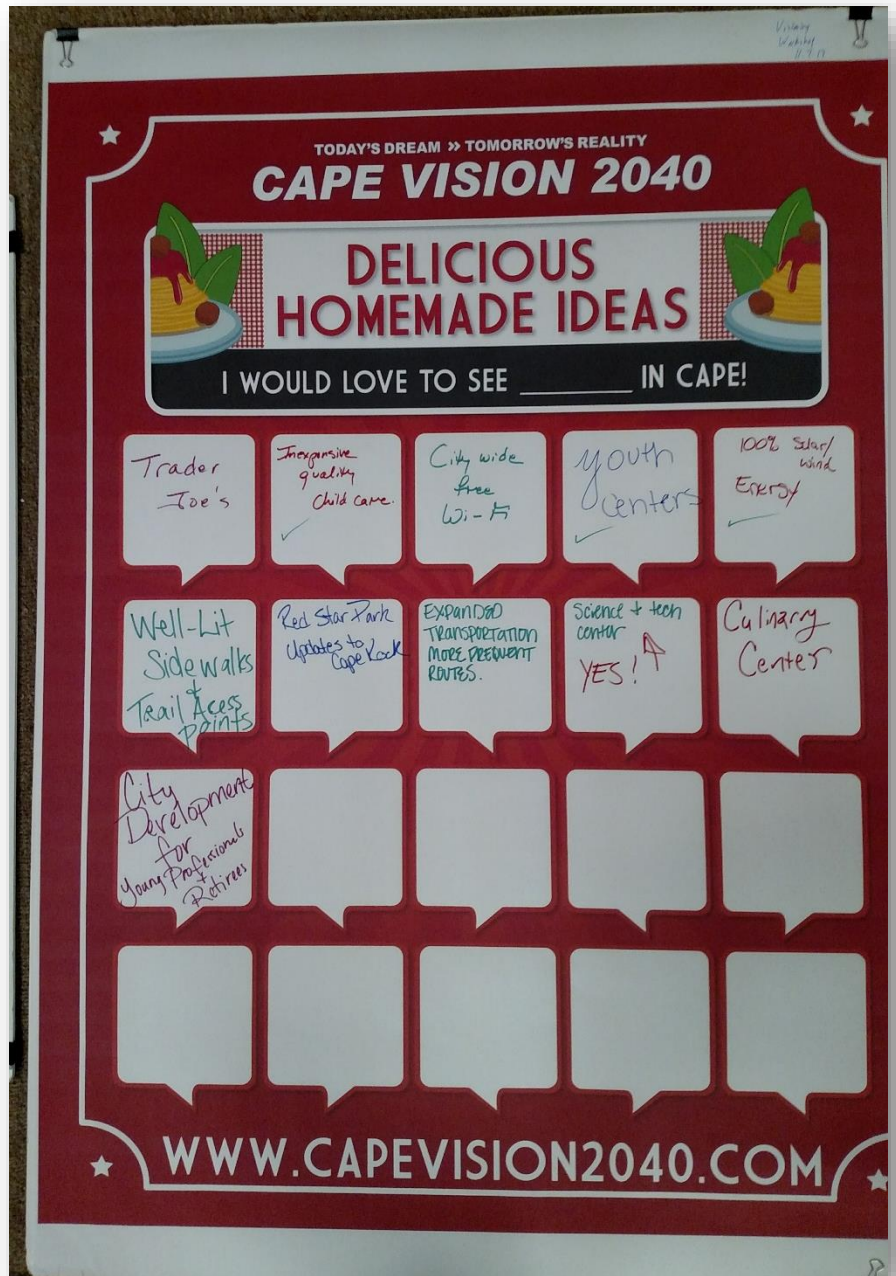 Visioning
Workshop
TODAY'S DREAM >> TOMORROW'S REALITY
CAPE VISION 2040
DELICIOUS
HOMEMADE IDEAS
I WOULD LOVE TO SEE ________ IN CAPE!
Trader
Joe's
Inexpensive
quality
Child care.
City wide
free
Wi-Fi
youth
centers
100% Solar/
wind
Energy
Well-Lit
Sidewalks
+
Trail Acess
points
Red Star Park
Updates to
Cape Rock
EXPANDED
TRANSPORTATION
MORE FREQUENT
ROUTES.
Science + tech
center
YES!
Culinary
Center
City
Development
for
Young Professionals
+
Retirees
WWW.CAPEVISION2040.COM